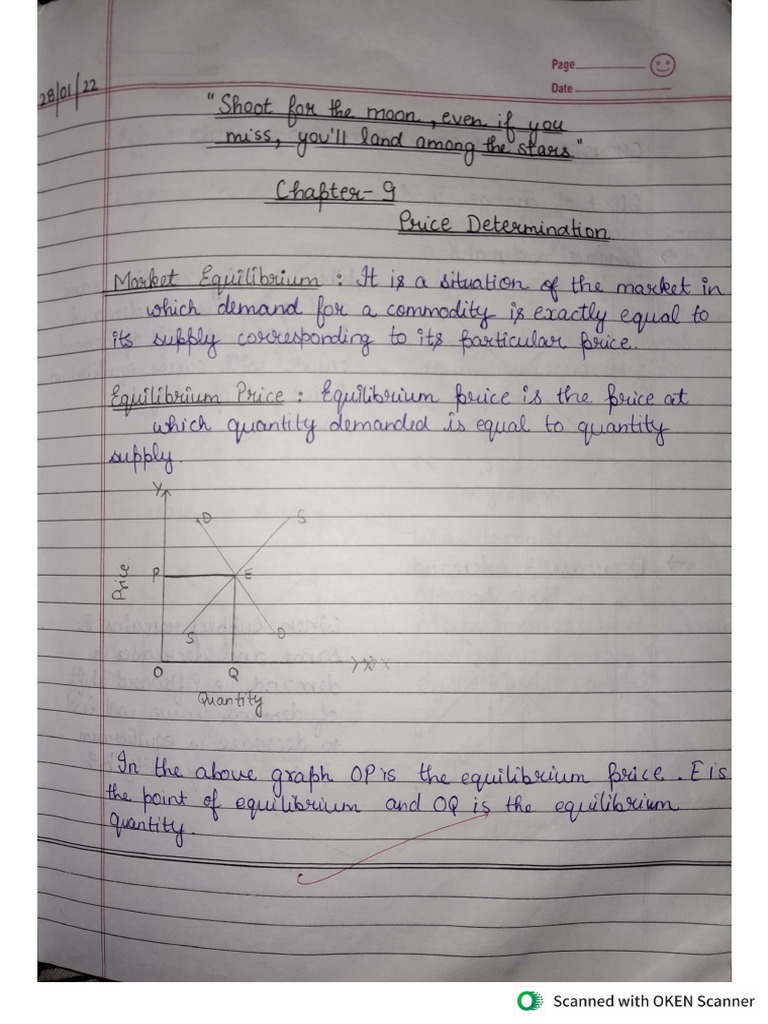 Page
Date
28/01/22
"Shoot for the moon, even if you
miss, you'll land among the stars."
Chapter-9
Price Determination
Market Equilibrium : It is a situation of the market in
which demand for a commodity is exactly equal to
its supply corresponding to its particular price.
Equilibrium Price : Equilibrium price is the price at
which quantity demanded is equal to quantity
supply.
Y
D
S
Price
P
E
S
D
O
Q
X
Quantity
In the above graph OP is the equilibrium price. E is
the point of equilibrium and OQ is the equilibrium
quantity.
Scanned with OKEN Scanner